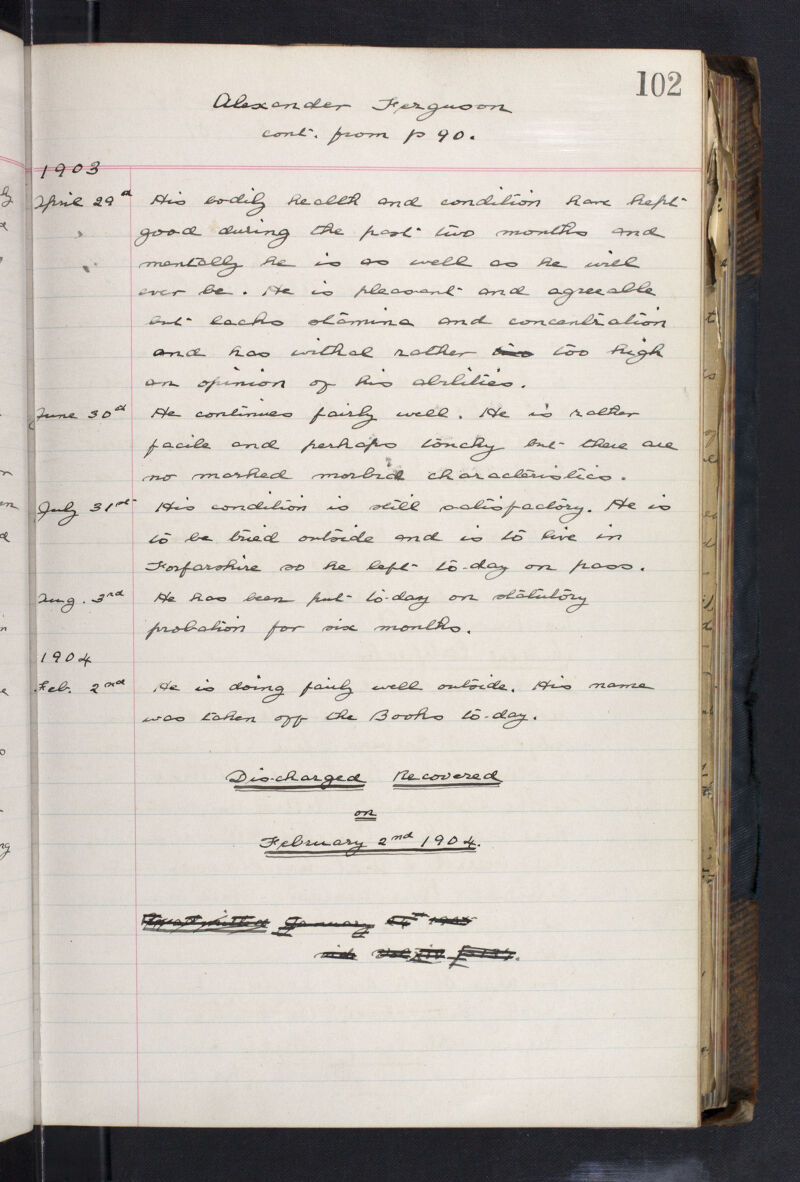 102
Alexander Ferguson
cont. from p 90.
1903
April 29th His bodily health and condition have kept
good during the past two months and
mentally he is as well as he will
ever be. He is pleasant and agreeable
but lacks stamina and concentration
and has withal rather too high
an opinion of his abilities.
June 30th He continues fairly well. He is rather
facile and perhaps touchy but there are
no marked morbid characteristics.
July 31st His condition is still satisfactory. He is
to be tried outside and is to live in
Forfarshire so he left to-day on pass.
Aug. 3rd He has been put to-day on statutory
probation for six months.
1904
Feb. 2nd He is doing fairly well outside. His name
was taken off the Books to-day.
Discharged Recovered
on
February 2nd 1904.
January